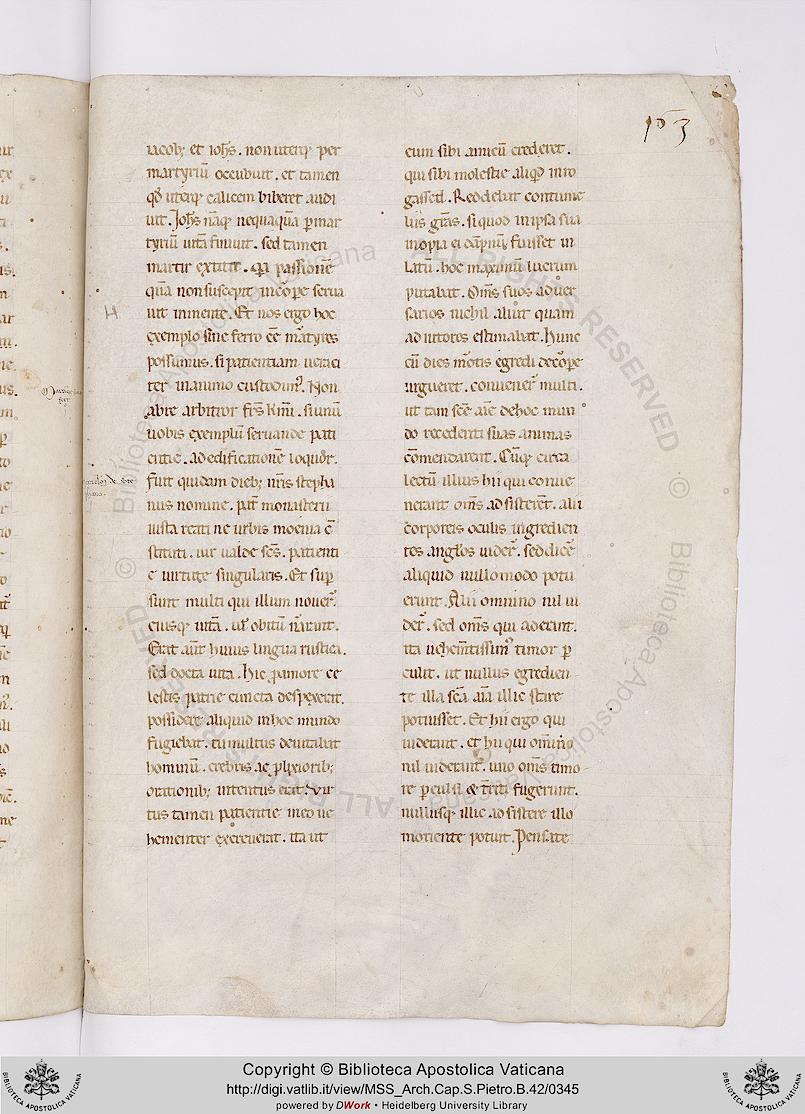 153
iacob; et ioh̄s. non uterq; per
martyriū occubuit. et tamen
qđ uterq; calicem biberet audi
uit. Joh̄s nāq; nequaquā p mar
tyriū uitā finiuit. sed tamen
martir extitit. qa passionē
quā non suscepit in corpe serua
uit in mente. Et nos ergo hoc
exemplo sine ferro eē martyres
possumus. si patientiam ueraci
ter in animo custodim⁹. Non
abre arbitror frs̄ kmi. si unū
uobis exemplū seruande pati
entie. ad edificationē loquor.
Fuit quidam dieb; nr̄is stepha
nus nomine. pat̄ monasterii
iuxta reatine urbis moenia c̄
stituti. uir ualde scs̄. patienti
e uirtute singularis. Et sup
sunt multi qui illum nouer̄.
eiusq; uitā. ul̄ obitū narrant.
Erat aut̄ huius lingua rustica.
sed docta uita. Hic p amore ce
lestis patrie cuncta despexerat.
possidere aliquid in hoc mundo
fugiebat. tumultus deuitabat
hominū. crebris ac plixiorib;
orationib; intentus erat. Vir
tus tamen patientie in eo ue
hementer excreuerat. ita ut
eum sibi amicū crederet.
qui sibi molestie aliqd inro
gasset. Reddebat contume
liis gr̄as. si quod in ipsa sua
inopia ei dāpnū fuisset il
latū. hoc maximū lucrum
putabat. Om̄s suos aduer
sarios nichil aliut quam
adiutores estimabat. Hunc
cū dies mortis egredi de corpe
urgueret. conuener̄ multi.
ut tam scē aīe de hoc mun
do recedenti suas animas
cōmendarent. Cūq; circa
lectū illius hii qui conue
nerant om̄s adsisterent. alii
corporeis oculis ingredien
tes anglōs uider̄. sed dicē
aliquid nullo modo potu
erunt. Alii omnino nil ui
der̄. sed om̄s qui aderant.
ita uehem̄tissim⁹ timor p
culit. ut nullus egredien
te illa scā aīa illic stare
potuisset. Et hii ergo qui
uiderant. et hii qui omnino
nil uiderant. uno om̄s timo
re pculsi & t̄riti fugerunt.
nullusq; illic adsistere illo
moriente potuit. Pensate
Copyright © Biblioteca Apostolica Vaticana
http://digi.vatlib.it/view/MSS_Arch.Cap.S.Pietro.B.42/0345
powered by DWork • Heidelberg University Library